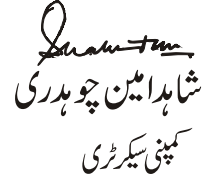 شاہد امین چوہدری
کمپنی سیکرٹری